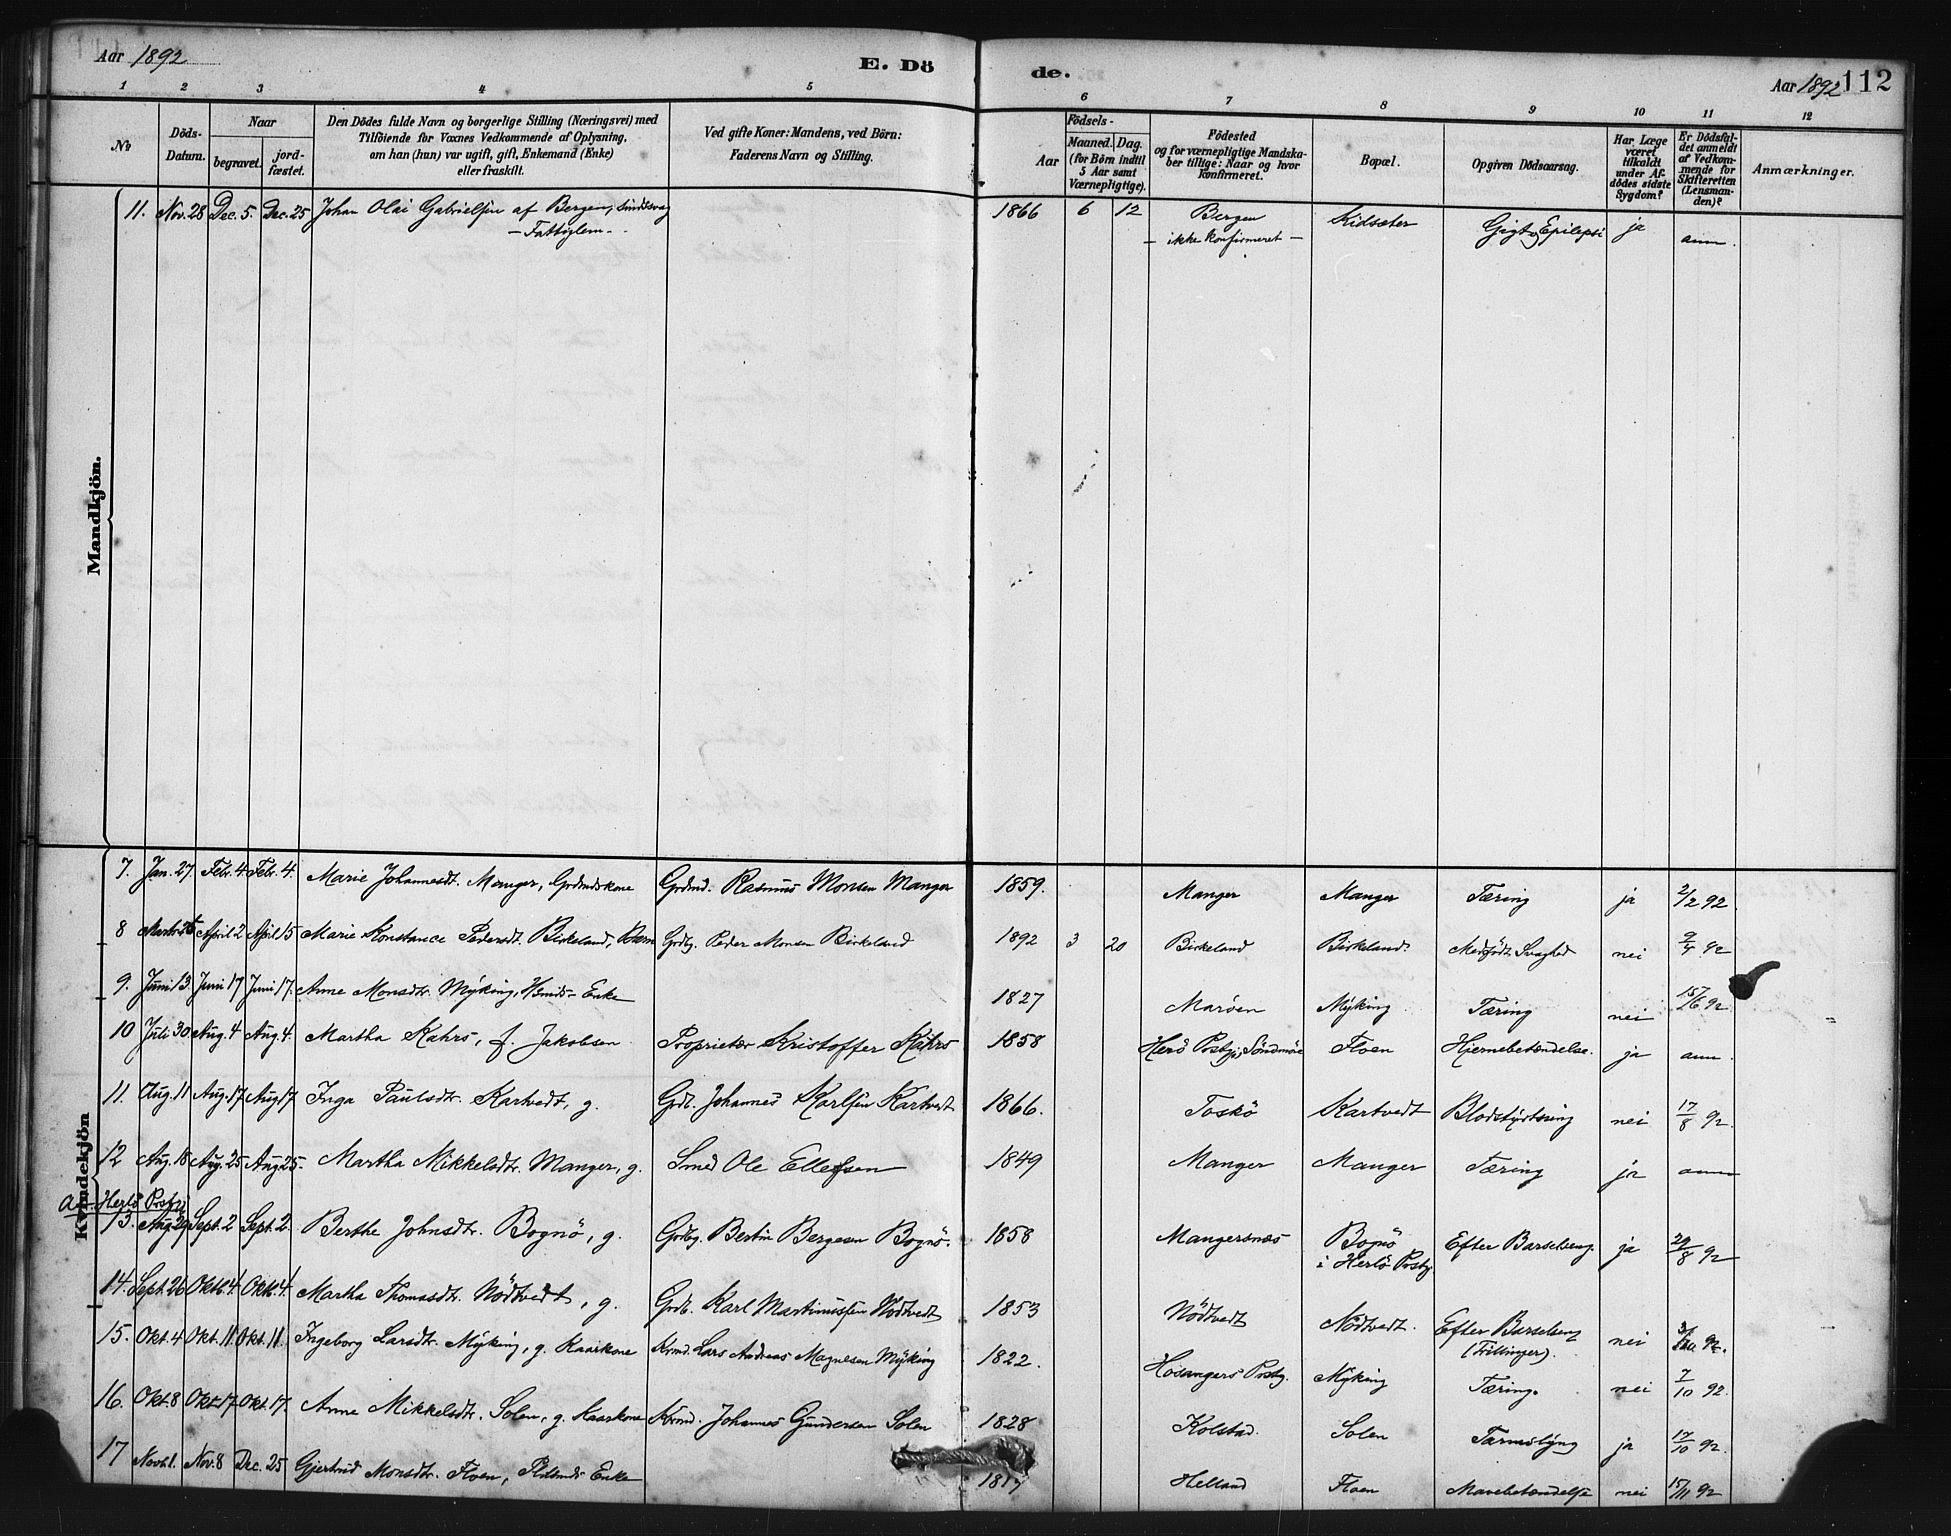 Aar 1892
E. Dö
de.
Aar 1892 112
1 2 3 4 5 6 7 8 9 10 11 12
No
Döds-
Datum.
Naar
begravet.
jord-
fæstet.
Den Dödes fulde Navn og borgerlige Stilling (Næringsvei) med
Tilföiende for Voxnes Vedkommende af Oplysning,
om han (hun) var ugift, gift, Enkemand (Enke)
eller fraskilt.
Ved gifte Koner: Mandens, ved Börn:
Faderens Navn og Stilling.
Födsels-
Aar
Maaned. Dag.
(for Börn indtil
5 Aar samt
Værnepligtige).
Födested
og for værnepligtige Mandska-
ber tillige: Naar og hvor
konfirmeret.
Bopæl.
Opgiven Dödsaarsag.
Har Læge
været
tilkaldt
under Af-
dödes sidste
Sygdom?
Er Dödsfal-
det anmeldt
af Vedkom-
mende for
Skifteretten
(Lensman-
den)?
Anmærkninger.
Mandkjön.
11. Nov. 28 Dec. 5. Dec. 25 Johan Olai Gabrielsen af Bergen, sindssvag 1866 6 12 Bergen Kidsæter Gigt og Epilepsi ja anm.
- Fattiglem - - ikke konfirmeret -
Kvindekjön
7. Jan. 27 Febr. 4 Febr. 4. Marie Johannesdt. Manger, Grdmdskone Grdmd. Rasmus Monsen Manger 1859. Manger Manger Tæring ja 2/2 92.
8 April 2 April 15 Marie Konstance Pedersdt. Birkeland, Barn Grdbg. Peder Monsen Birkeland 1892 3 20 Birkeland Birkeland. Medfödt Svaghed nei 9/4 92
9. Juni 13. Juni 17 Juni 17. Anne Monsdtr. Myking, Enke 1827 Maröen Myking Tæring nei 15/6 92
10 Juli 30 Aug. 4 Aug. 4. Martha Kahrs, f. Jakobsen Proprietær Kristoffer Kahrs 1858 Herö Prstgj. Söndmöre Floen Hjernebetændelse. ja anm.
11. Aug. 11 Aug. 17 Aug 17 Inga Paulsdtr. Kartvedt, g. Grdb. Johannes Karlsen Kartvedt 1866. Toskö Kartvedt Blodstyrtning nei 17/8 92
12 Aug. 18 Aug. 25 Aug 25. Martha Mikkelsdtr. Manger, g. Smed Ole Ellefsen 1849 Manger Manger Tæring ja anm
a. Herlö Prstgj
13. Aug. 29 Sept. 2 Sept. 2. Berthe Johnsdtr. Bognö, g. Grdbg. Bertin Bergesen Bognö. 1858 Mangersnæs Bognö Efter Barselseng. ja 29/8 92
i Herlö Prstgj.
14. Sept. 26 Oktb. 4. Oktb. 4. Martha Thomasdtr. Nödtvedt, g. Grdb. Karl Martinussen Nödtvedt 1853 Nödtvedt Nödtvedt. Efter Barselseng nei
(Trillinger).
15. Okt. 4 Okt. 11 Okt. 11. Ingeborg Larsdtr. Myking, g. Kaarkone Krmd. Lars Andreas Magnesen Myking 1822. Hosangers Prstgj. Myking Tæring. nei 7/10 92.
16. Okt. 8 Okt. 17 Okt. 17. Anne Mikkelsdtr. Solen, g. Kaarkone Krmd. Johannes Gundersen Solen 1828 Kolstad. Solen Tarmslyng ja 17/10 92.
17 Novb. 1. Nov. 8 Dec. 25 Gjertrud Monsdtr. Floen, Enke 1817 Helland Floen Mavebetændelse nei 15/11 92